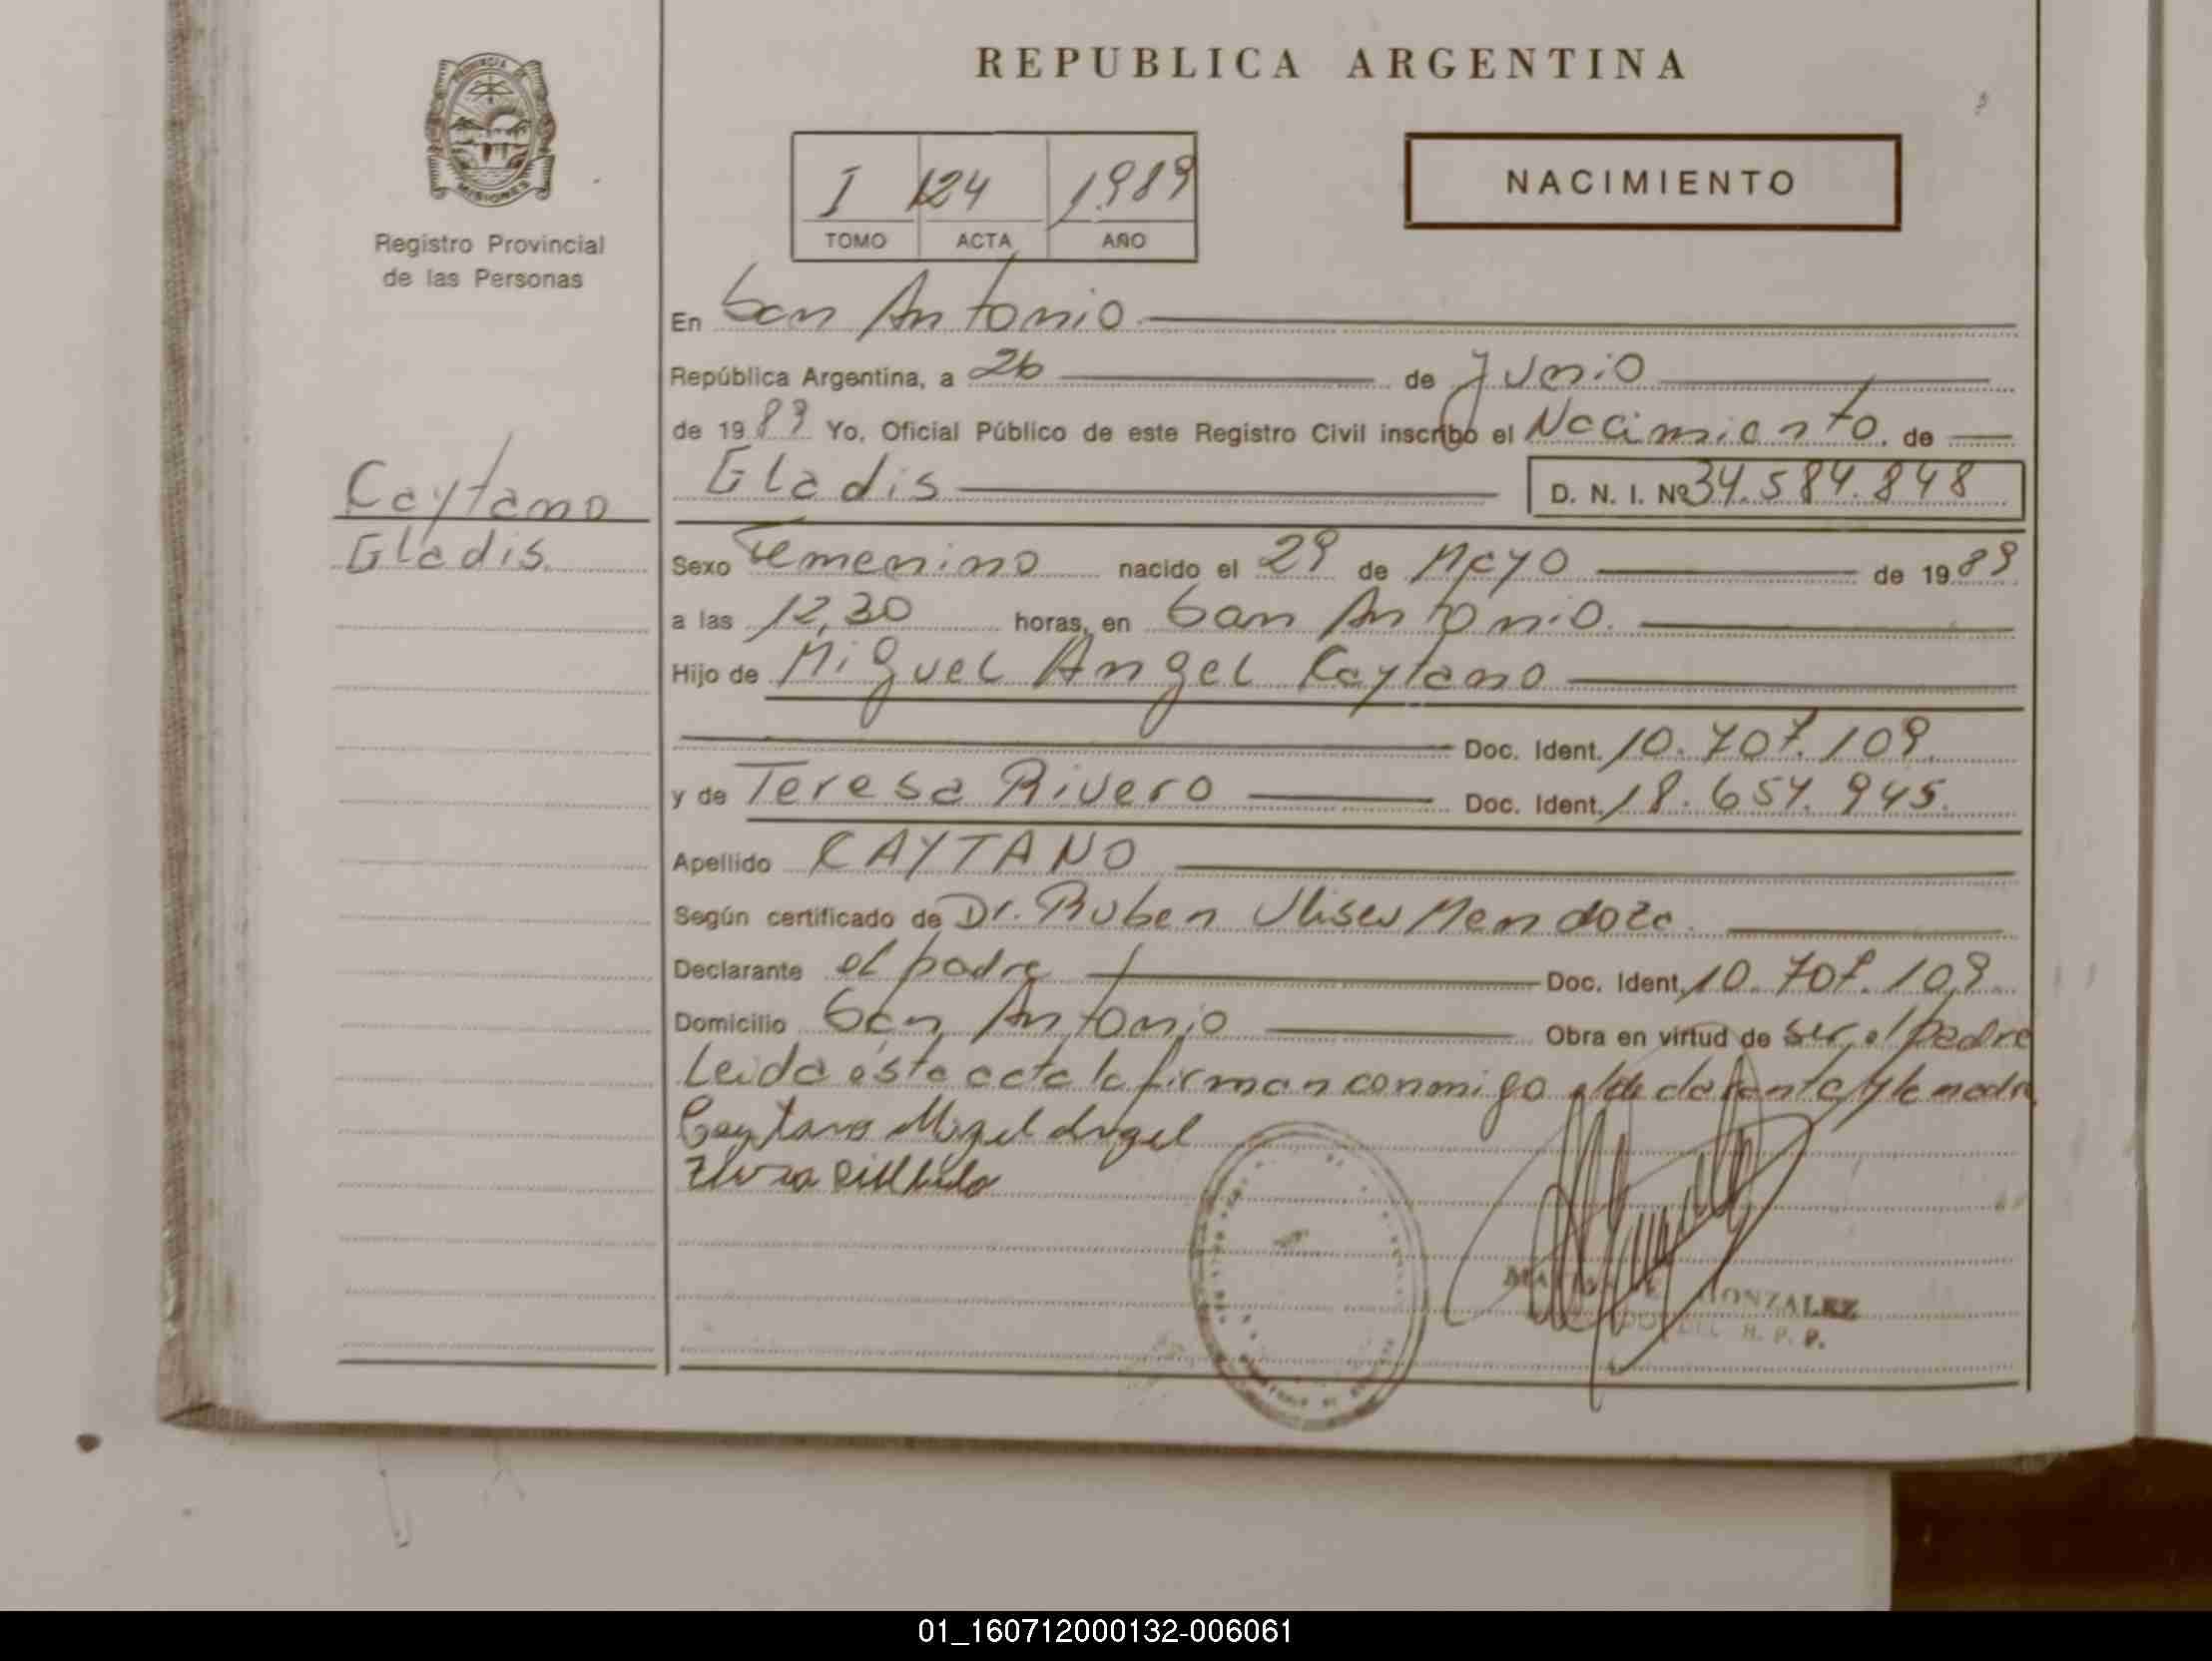 REPUBLICA ARGENTINA
PROVINCIA DE
MISIONES
Registro Provincial
de las Personas
I 124 1989
TOMO ACTA AÑO
NACIMIENTO
En San Antonio
República Argentina, a 26 de Junio
de 1989 Yo, Oficial Público de este Registro Civil inscribo el Nacimiento de
Caytano
Gladis
Gladis D. N. I. Nº 34.584.848
Sexo Femenino nacido el 29 de Mayo de 1989
a las 12,30 horas, en San Antonio.
Hijo de Miguel Angel Caytano
Doc. Ident. 10.707.109.
y de Teresa Rivero Doc. Ident. 18.654.945.
Apellido CAYTANO
Según certificado de Dr. Ruben Ulises Mendoza.
Declarante el padre Doc. Ident. 10.707.109.
Domicilio San Antonio Obra en virtud de ser el padre
Leida esta acta la firman conmigo el declarante y la madre
Caytano Migel Angel
GONZALEZ
R. P. P.
01_160712000132-006061